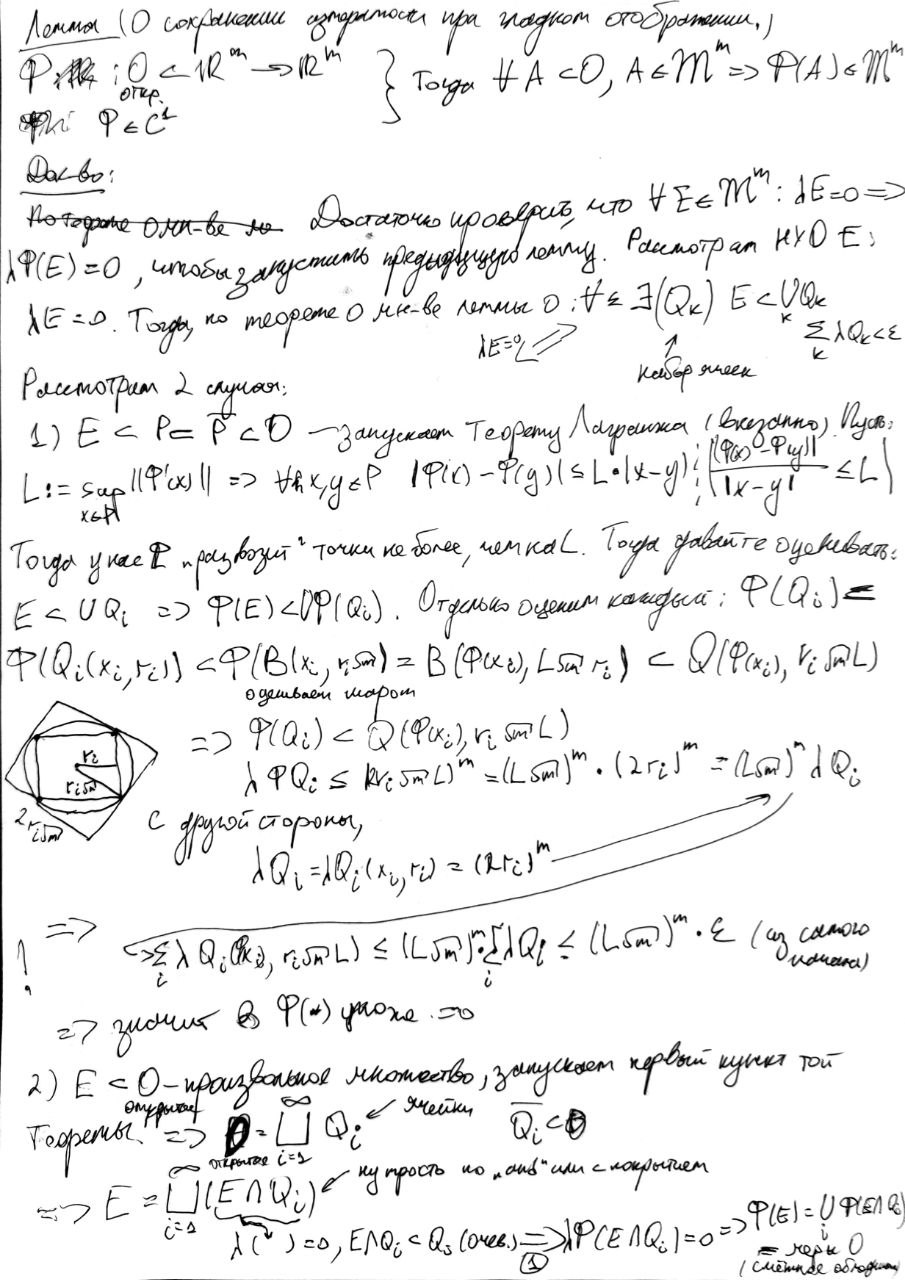 Лемма (О сохранении измеримости при гладком отображении.)
Φ : O ⊂ ℝ^m → ℝ^m } Тогда ∀ A ⊂ O, A ∈ 𝔐^m ⇒ Φ(A) ∈ 𝔐^m
откр.
Φ ∈ C^1
Док-во:
Достаточно проверить, что ∀ E ∈ 𝔐^m : λE = 0 ⇒
λΦ(E) = 0, чтобы запустить предыдущую лемму. Рассмотрим НУО E :
λE = 0. Тогда, по теореме О мн-ве леммы 0 : ∀ε ∃(Q_k) E ⊂ ⋃_k Q_k
λE=0 набор ячеек ∑_k λQ_k < ε
Рассмотрим 2 случая:
1) E ⊂ P = P̅ ⊂ O – запускает Теорему Лагранжа (вказанно). Пусть:
L := sup_{x∈P} ||Φ'(x)|| ⇒ ∀ x, y ∈ P |Φ(x) - Φ(y)| ≤ L·|x - y| ; |Φ(x) - Φ(y)| / |x - y| ≤ L
Тогда у нас Φ „развозит" точки не более, чем на L. Тогда давайте оценивать:
E ⊂ ⋃Q_i ⇒ Φ(E) ⊂ ⋃Φ(Q_i). Отдельно оценим каждый: Φ(Q_i) =
Φ(Q_i(x_i, r_i)) ⊂ Φ(B(x_i, r_i√m) = B(Φ(x_i), L√m r_i) ⊂ Q(Φ(x_i), r_i√m L)
оцениваем шаром
⇒ Φ(Q_i) ⊂ Q(Φ(x_i), r_i√m L)
r_i
r_i√m
2r_i√m
λΦQ_i ≤ (2r_i√m L)^m = (L√m)^m · (2r_i)^m = (L√m)^m λQ_i
С другой стороны,
λQ_i = λQ_i(x_i, r_i) = (2r_i)^m
⇒
! ∑_i λQ_i(Φ(x_i), r_i√m L) ≤ (L√m)^m · ∑_i λQ_i ≤ (L√m)^m · ε (из самого
начала)
⇒ значит в Φ(·) уноже = 0
2) E ⊂ O – произвольное множество, запускаем первый пункт той
открытое
Теоремы. ⇒ O = ⨆_{i=1}^∞ Q_i ← ячейки Q̅_i ⊂ O
открытое
⇒ E = ⨆_{i=1}^∞ (E ∩ Q_i) ← ну прость по или с покрытием
λ( ) = 0, E ∩ Q_i ⊂ Q_i (очев.) ⇒ λΦ(E ∩ Q_i) = 0 ⇒ Φ(E) = ⋃_i Φ(E ∩ Q_i)
(1) = меры 0
(счётное